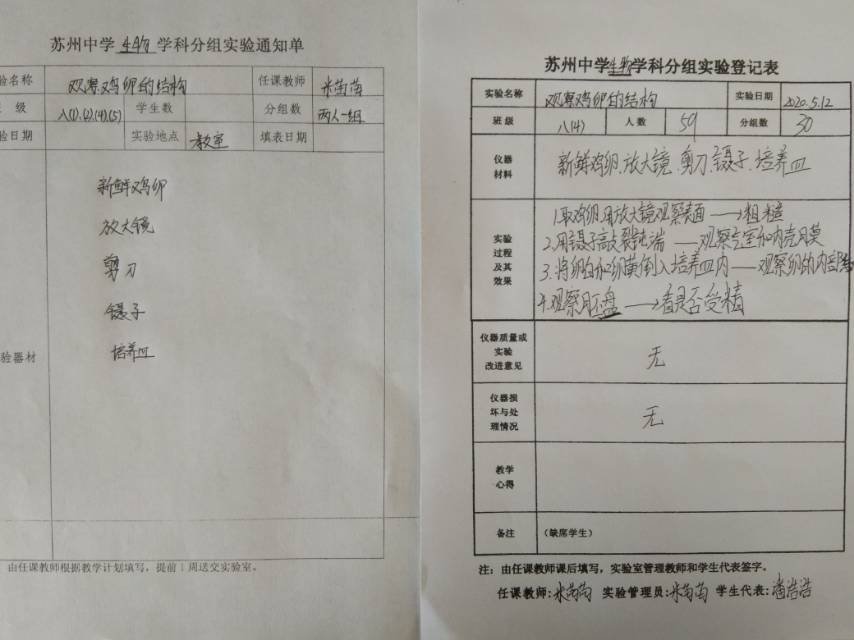 苏州中学生物学科分组实验通知单
验名称 观察鸡卵的结构 任课教师 米茵茵
级 八(1).(2).(4).(5) 学生数 分组数 两人一组
验日期 实验地点 教室 填表日期
新鲜鸡卵
放大镜
剪刀
镊子
培养皿
验器材
由任课教师根据教学计划填写，提前1周送交实验室。
苏州中学生物学科分组实验登记表
实验名称 观察鸡卵的结构 实验日期 2020.5.12
班级 八(4) 人数 59 分组数 30
仪器
材料
新鲜鸡卵.放大镜.剪刀.镊子.培养皿
实验
过程
及其
效果
1.取鸡卵.用放大镜观察表面→粗糙
2.用镊子敲裂钝端—观察气室和内壳膜
3.将卵白和卵黄倒入培养皿内—观察卵的内部结
4.观察胚盘→看是否受精
仪器质量或
实验
改进意见
无
仪器损
坏与处
理情况
无
教学
心得
备注 (缺席学生)
注：由任课教师课后填写，实验室管理教师和学生代表签字。
任课教师:米茵茵 实验管理员:米茵茵 学生代表:潘浩浩